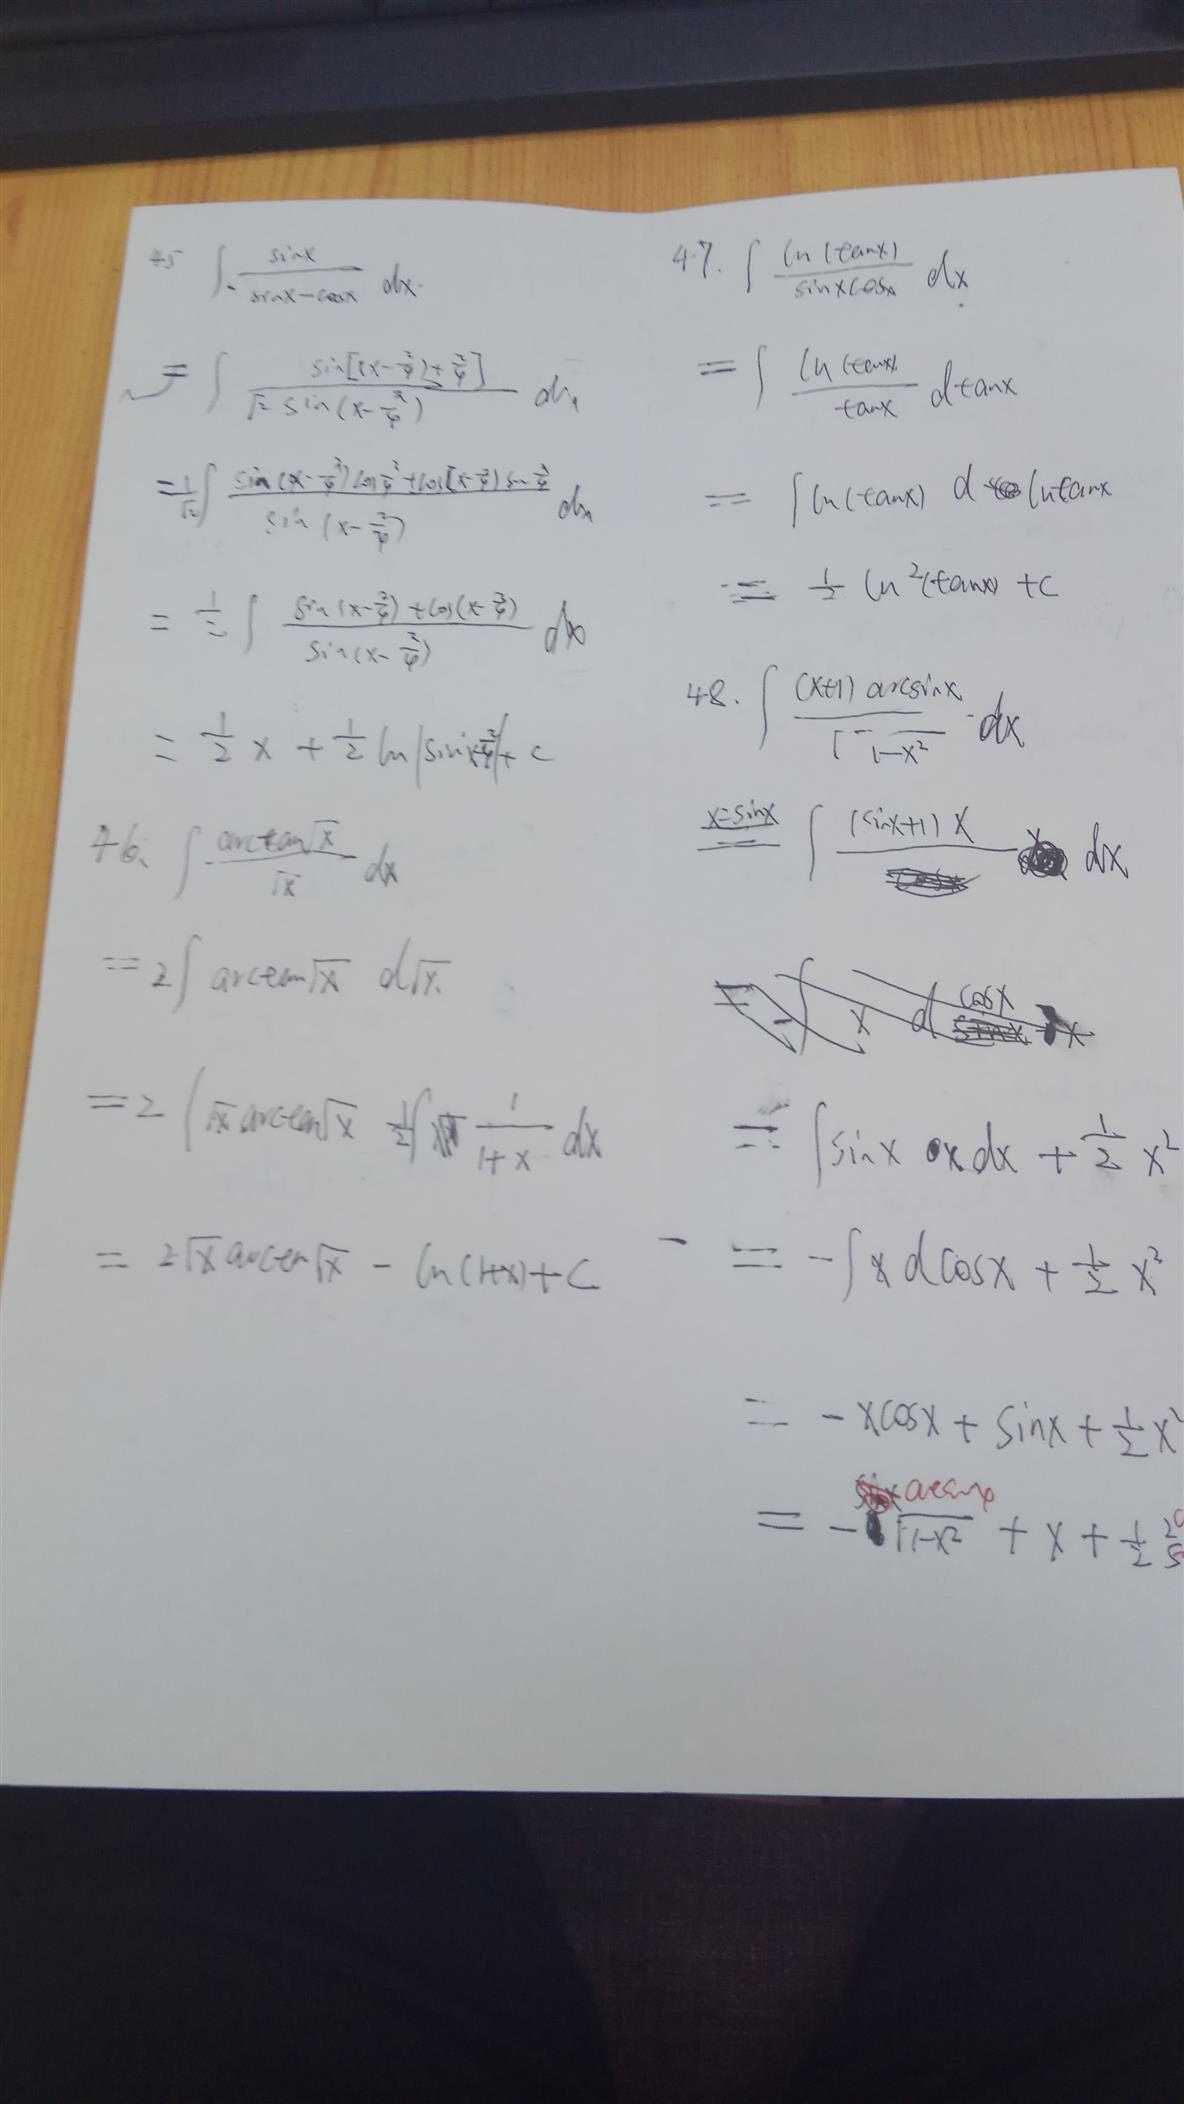 45 ∫ sinx/(sinx-cosx) dx.
= ∫ sin[(x-π/4)+π/4] / (√2 sin(x-π/4)) dx
= 1/√2 ∫ (sin(x-π/4)cosπ/4+cos[x-π/4)sinπ/4) / sin(x-π/4) dx
= 1/2 ∫ (sin(x-π/4)+cos(x-π/4)) / sin(x-π/4) dx
= 1/2 x + 1/2 ln|sin(x-π/4)|+c
46. ∫ arctan√x/√x dx
= 2∫ arctan√x d√x.
= 2 (√x arctan√x - 1/2∫ 1/(1+x) dx
= 2√x arctan√x - ln(1+x)+C
47. ∫ ln(tanx)/(sinxcosx) dx
= ∫ ln(tanx)/tanx dtanx
= ∫ln(tanx) d lntanx
= 1/2 ln²(tanx) +c
48. ∫ (x+1)arcsinx/√(1-x²) dx
x=sinx = ∫ (sinx+1)x dx
= ∫sinx x dx + 1/2 x²
= -∫x dcosx + 1/2 x²
= -xcosx + sinx + 1/2 x²
= -√(1-x²) arcsinx + x + 1/2